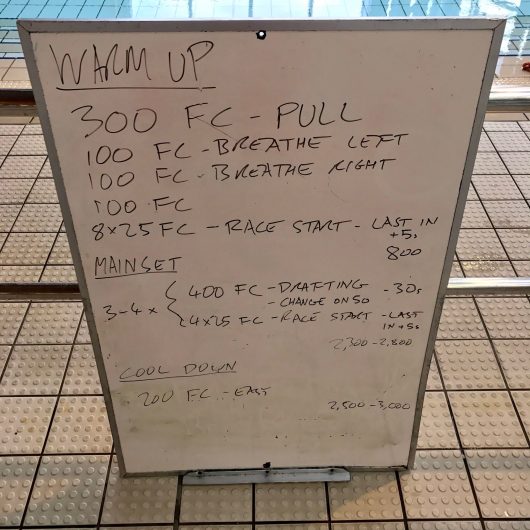 WARM UP
300 FC - PULL
100 FC - BREATHE LEFT
100 FC - BREATHE RIGHT
100 FC
8x25 FC - RACE START - LAST IN +5s
800
MAINSET
3-4 x { 400 FC - DRAFTING - 30s
- CHANGE ON 50
4x25 FC - RACE START - LAST IN +5s
2,300 - 2,800
COOL DOWN
200 FC - EASY
2,500 - 3,000